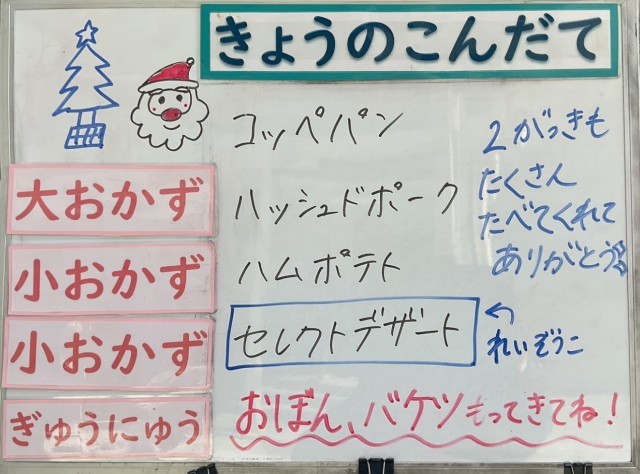 きょうのこんだて
コッペパン
大おかず ハッシュドポーク
小おかず ハムポテト
小おかず セレクトデザート
ぎゅうにゅう
2がっきも
たくさん
たべてくれて
ありがとう
←れいぞうこ
おぼん、バケツもってきてね!